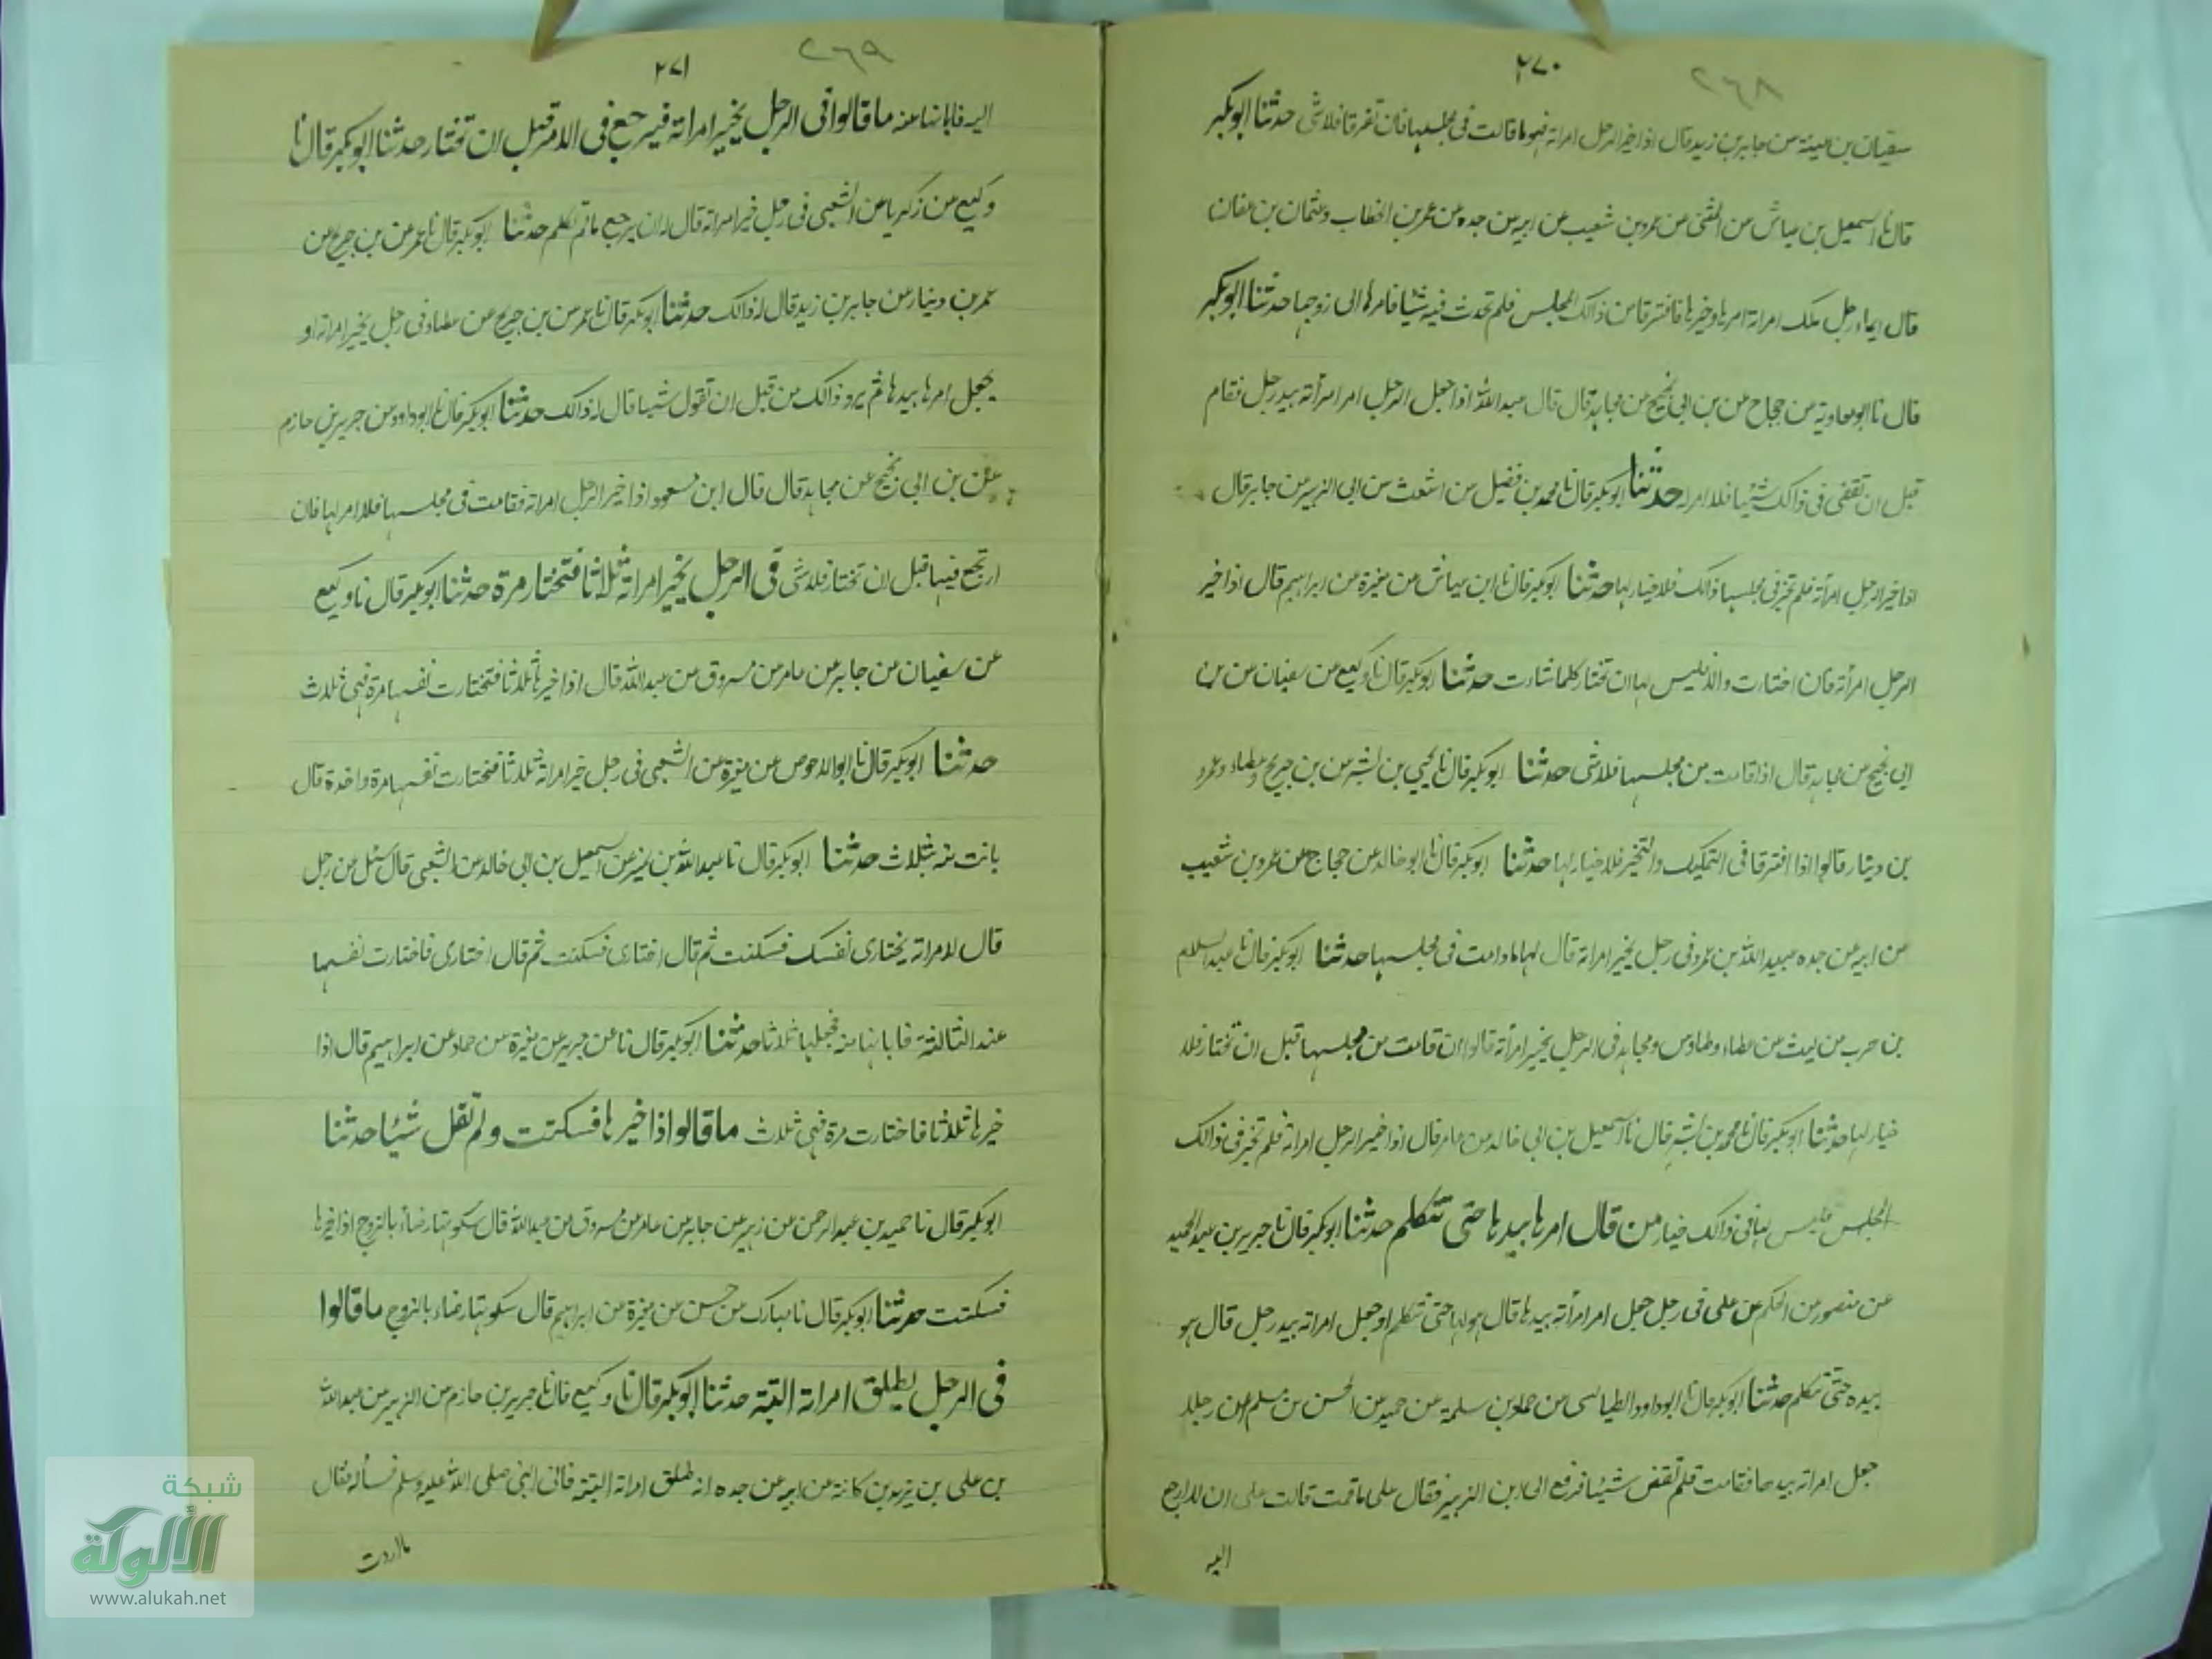 ٢٧٠
٢٦٨
سفيان بن عيينة عن جابر بن زيد قال اذا خير الرجل امراته فهو ما قالت فى مجلسها فان تفرقا فلا شى حدثنا ابو بكر
قال نا اسمعيل بن عياش عن المثنى عن عمرو بن شعيب عن ابيه عن جده عن عمر بن الخطاب وعثمان بن عفان
قال ايما رجل ملك امراته امرها وخيرها فافترقا من ذالك المجلس فلم تحدث فيه شيئا فامرها الى زوجها حدثنا ابو بكر
قال نا ابو معاوية عن حجاج عن بن ابى نجيح عن مجاهد قال قال عبد الله اذا جعل الرجل امر امرأته بيد رجل فقام
قبل ان تقضى فى ذالك شيئا فلا امر له حدثنا ابو بكر قال نا محمد بن فضيل عن اشعث عن ابى الزبير عن جابر قال
اذا خير الرجل امرأته فلم تختر فى مجلسها ذالك فلا خيار لها حدثنا ابو بكر قال نا ابن عياش عن مغيرة عن ابراهيم قال اذا خير
الرجل امرأته فان اختارت والا فليس لها ان تختار كلما شاءت حدثنا ابو بكر قال نا وكيع عن سفيان عن بن
ابى نجيح عن مجاهد قال اذا قامت من مجلسها فلا شى حدثنا ابو بكر قال نا يحيى بن بشر عن بن جريج وعطاء وعمرو
بن دينار قالوا اذا افترقا فى التمليك والتخير فلا خيار لها حدثنا ابو بكر قال نا ابو خالد عن حجاج عن عمرو بن شعيب
عن ابيه عن جده عبيد الله بن عمرو فى رجل يخير امراته قال لها ما دامت فى مجلسها حدثنا ابو بكر قال نا عبد السلام
بن حرب عن ليث عن عطاء وطاوس ومجاهد فى الرجل يخير امرأته قالوا ان قامت من مجلسها قبل ان تختار فلا
خيار لها حدثنا ابو بكر قال نا محمد بن بشر قال نا اسمعيل بن ابى خالد عن عامر قال اذا خير الرجل امراته فلم تختر فى ذالك
المجلس فليس لها فى ذالك خيار من قال امرها بيدها حتى تتكلم حدثنا ابو بكر قال نا جرير بن عبد الحميد
عن منصور عن الحكم عن على فى رجل جعل امر امرأته بيدها قال هو لها حتى تتكلم او جعل امراته بيد رجل قال هو
بيده حتى تتكلم حدثنا ابو بكر قال نا ابو داود الطيالسى عن حماد بن سلمة عن حميد عن الحسن بن مسلم ان رجلا
جعل امراته بيدها فقامت فلم تقض شيئا فرفع الى ابن الزبير فقال على ما قمت قالت على ان لا ارجع
اليه
٢٧١
٢٦٩
اليه فابانها منه ما قالوا فى الرجل يخير امراته فيرجع فى الامر قبل ان تختار حدثنا ابو بكر قال نا
وكيع عن زكريا عن الشعبى فى رجل خير امراته قال له ان يرجع ما لم تكلم حدثنا ابو بكر قال نا عمر عن بن جريج عن
عمر بن دينار عن جابر بن زيد قال له ذالك حدثنا ابو بكر قال نا عمر عن بن جريج عن عطاء فى رجل يخير امراته او
يجعل امرها بيدها ثم يرد ذالك من قبل ان تقول شيا قال له ذالك حدثنا ابو بكر قال نا ابو داود عن جرير بن حازم
عن بن ابى نجيح عن مجاهد قال قال ابن مسعود اذا خير الرجل امراته فقامت فى مجلسها فلا امر لها فان
ارتجع فيها قبل ان تختار فلا شى فى الرجل يخير امراته ثلاثا فتختار مرة حدثنا ابو بكر قال نا وكيع
عن سفيان عن جابر عن عامر عن مسروق عن عبد الله قال اذا خيرها ثلاثا فتختارت نفسها مرة فهى ثلاث
حدثنا ابو بكر قال نا ابو الاحوص عن مغيرة عن الشعبى فى رجل خير امراته ثلاثا فتختارت نفسها مرة واحدة قال
بانت منه بثلاث حدثنا ابو بكر قال نا عبد الله بن نمير عن اسمعيل بن ابى خالد عن الشعبى قال سئل عن رجل
قال لامراته يختارى نفسك فسكتت ثم قال اختارى فسكتت ثم قال اختارى فاختارت نفسها
عند الثالثة فابانها منه فجعلها ثلاثا حدثنا ابو بكر قال نا عن جرير عن مغيرة عن حماد عن ابراهيم قال اذا
خيرها ثلاثا فاختارت مرة فهى ثلاث ما قالوا اذا خيرها فسكتت ولم تقل شيئا حدثنا
ابو بكر قال نا حميد بن عبد الرحمن عن زهير عن جابر عن عامر عن مسروق عن عبد الله قال سكوتها رضاء بالزوج اذا خيرها
فسكتت حدثنا ابو بكر قال نا مبارك عن حسن عن مغيرة عن ابراهيم قال سكوتها رضاء بالزوج ما قالوا
فى الرجل يطلق امراته البتة حدثنا ابو بكر قال نا وكيع قال نا جرير بن حازم عن الزبير عن عبد الله
بن على بن يزيد بن كانة عن ابيه عن جده انه طلق امراته البتة فاتى النبى صلى الله عليه وسلم فسأله فقال
ما اردت
شبكة
الألوكة
www.alukah.net